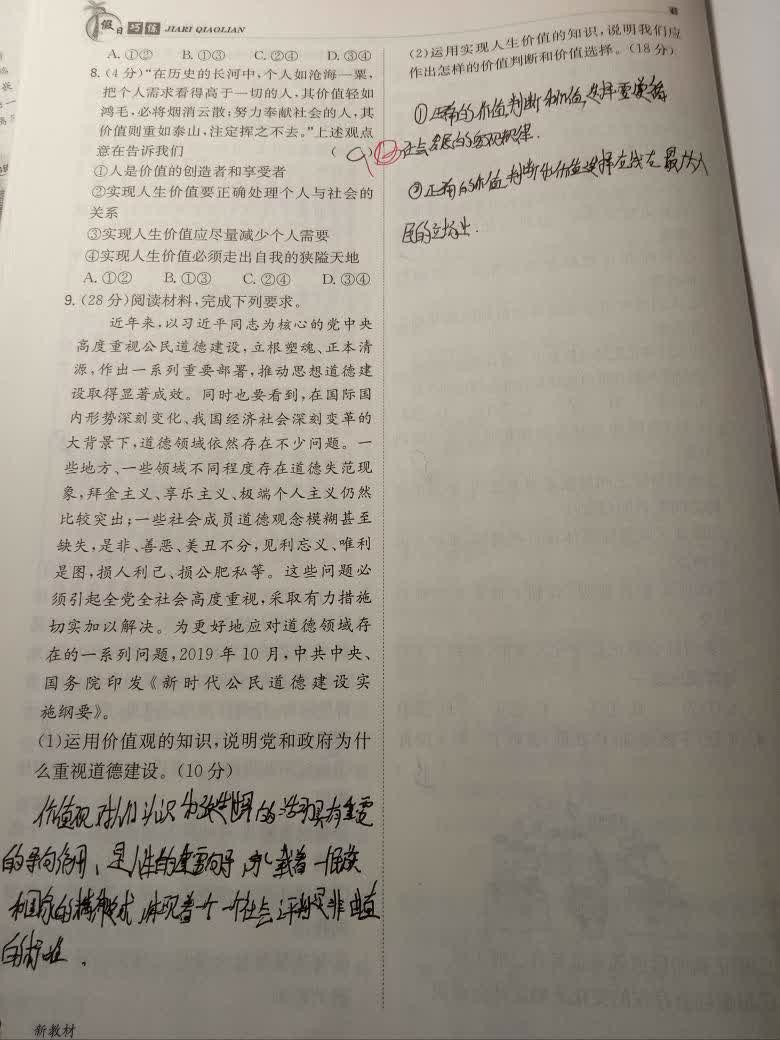 假日巧练 JIARI QIAOLIAN
A. ①② B. ①③ C. ②④ D. ③④
8. (4 分)“在历史的长河中,个人如沧海一粟,
把个人需求看得高于一切的人,其价值轻如
鸿毛,必将烟消云散;努力奉献社会的人,其
价值则重如泰山,注定挥之不去。”上述观点
意在告诉我们 (
①人是价值的创造者和享受者
②实现人生价值要正确处理个人与社会的
关系
③实现人生价值应尽量减少个人需要
④实现人生价值必须走出自我的狭隘天地
A. ①② B. ①③ C. ②④ D. ③④
9. (28 分)阅读材料,完成下列要求。
近年来,以习近平同志为核心的党中央
高度重视公民道德建设,立根塑魂、正本清
源,作出一系列重要部署,推动思想道德建
设取得显著成效。同时也要看到,在国际国
内形势深刻变化、我国经济社会深刻变革的
大背景下,道德领域依然存在不少问题。一
些地方、一些领域不同程度存在道德失范现
象,拜金主义、享乐主义、极端个人主义仍然
比较突出;一些社会成员道德观念模糊甚至
缺失,是非、善恶、美丑不分,见利忘义、唯利
是图,损人利己、损公肥私等。这些问题必
须引起全党全社会高度重视,采取有力措施
切实加以解决。为更好地应对道德领域存
在的一系列问题,2019 年 10 月,中共中央、
国务院印发《新时代公民道德建设实
施纲要》。
(1)运用价值观的知识,说明党和政府为什
么重视道德建设。(10 分)
价值观对人们认识的活动具有重要
的导向作用、是人生的重要向导,承载着一个民族
和国家的精神,体现着一个社会评判是非曲直
的标准。
新教材
(2)运用实现人生价值的知识,说明我们应
作出怎样的价值判断和价值选择。(18 分)
①正确的价值判断和价值选择要遵循
社会发展的客观规律.
②正确的价值判断和价值选择应站在最广大人
民的立场上.